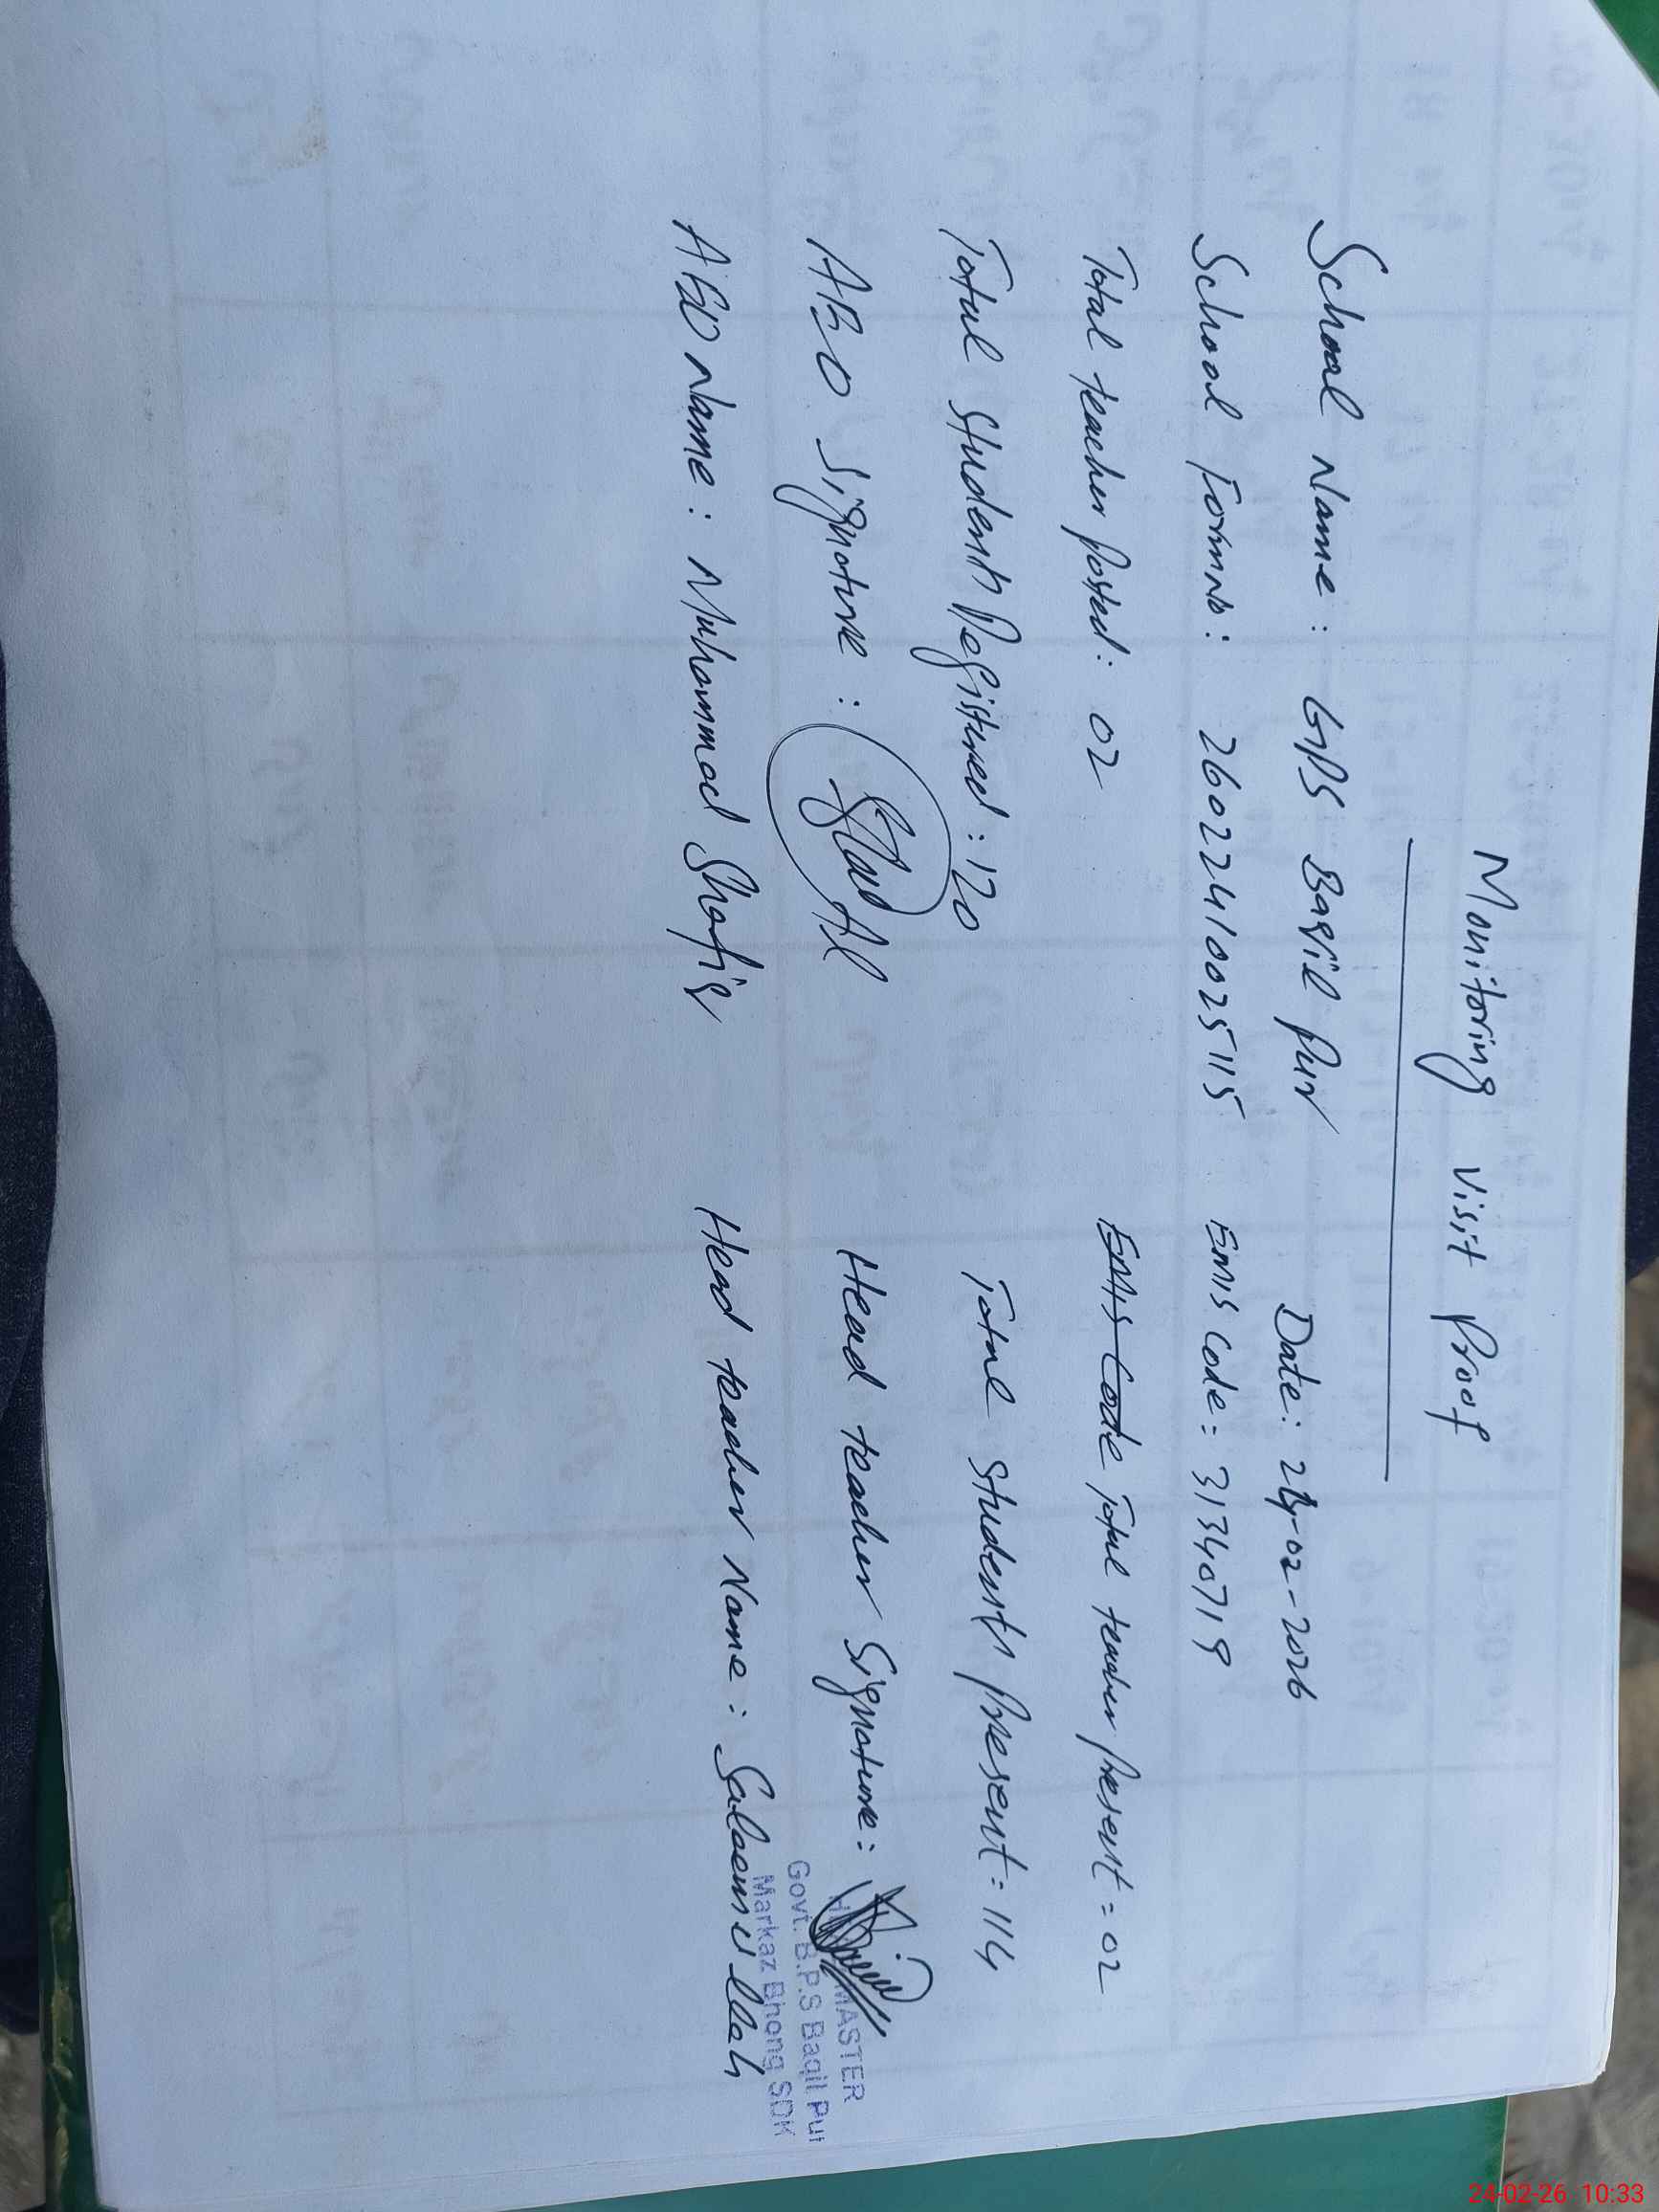 Monitoring Visit Proof
School Name: GPS Baqil Pur Date: 24-02-2026
School FormNo: 26022410025115 EMIS Code = 31340719
Total teacher Posted: 02 EMIS Code Total teacher Present = 02
Total Students Registered: 120 Total Students Present = 114
AEO Signature: Head teacher Signature:
MASTER
Govt. B.P.S Baqil Pur
Markaz Bhong SDK
AEO Name: Muhammad Shafiq Head teacher Name: Saleem Ullah
24-02-26 10:33